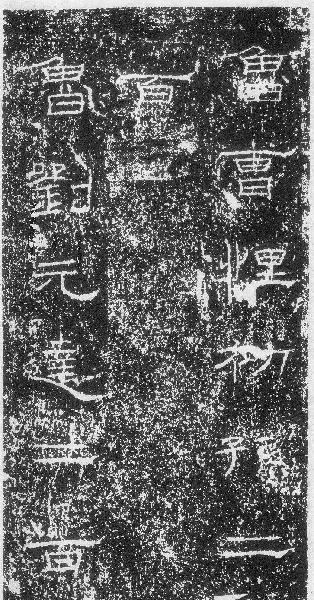 魯曹悝初孫二
百
魯劉元達二百